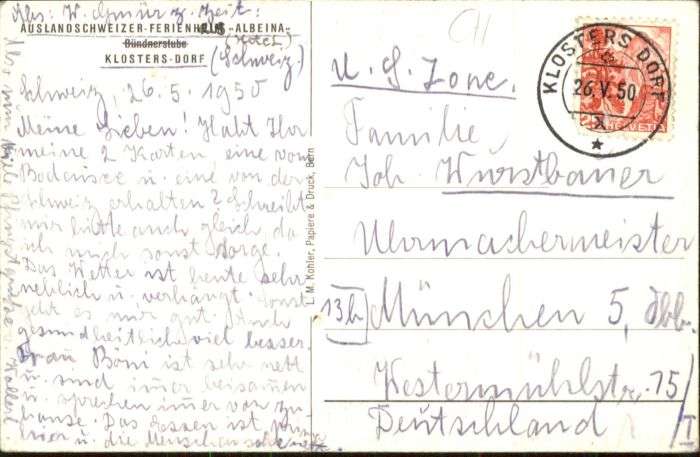 Abs: W. z. Zeit:
AUSLANDSCHWEIZER-FERIENHAUS-ALBEINA-
Bündnerstube
(Hotel)
KLOSTERS-DORF (Schweiz)
Schweiz, 26.5.1950
Meine Lieben! Habt Ihr
meine 2 Karten, eine vom
Bodensee u. eine von der
Schweiz erhalten? Schreibt
mir bitte auch gleich, da
ich mich sonst sorge.
Das Wetter ist heute sehr
neblich u. verhängt. Sonst
geht es mir gut. Auch
gesundheitlich viel besser.
Frau Böni ist sehr nett
u. sind imer beisamen
u. sprechen imer von zu
hause. Das Essen ist prima
hier u. die Menschen
L. M. Kohler, Papiere & Druck, Bern
CH
KLOSTERS DORF
26.V.50
HELVETIA
U. S. Zone.
Familie
Joh. Wurstbauer
Uhrmachermeister
13b) München 5, Obb.
Westermühlstr. 15/
Deutschland /I